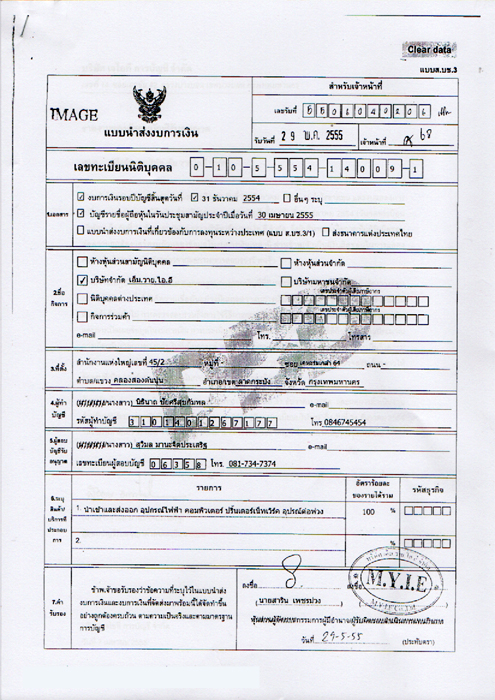 Clear data
แบบส.บช.3
สำหรับเจ้าหน้าที่
IMAGE
เลขรับที่
แบบนำส่งงบการเงิน
วันรับที่ 29 พ.ค. 2555 เจ้าหน้าที่
เลขทะเบียนนิติบุคคล 0-10-5-554-14009-1
1.เอกสาร
งบการเงินรอบปีบัญชีสิ้นสุดวันที่ 31 ธันวาคม 2554 อื่นๆ ระบุ
บัญชีรายชื่อผู้ถือหุ้นในวันประชุมสามัญประจำปีเมื่อวันที่ 30 เมษายน 2555
แบบนำส่งงบการเงินที่เกี่ยวข้องกับการลงทุนระหว่างประเทศ (แบบ ส.บช.3/1) ส่งธนาคารแห่งประเทศไทย
2.ชื่อกิจการ
ห้างหุ้นส่วนสามัญนิติบุคคล ห้างหุ้นส่วนจำกัด
บริษัทจำกัด เอ็ม.วาย.ไอ.อี บริษัทมหาชนจำกัด
นิติบุคคลต่างประเทศ เลขประจำตัวผู้เสียภาษีอากร
กิจการร่วมค้า เลขประจำตัวผู้เสียภาษีอากร
e-mail โทร. โทรสาร
3.ที่ตั้ง
สำนักงานแห่งใหญ่เลขที่ 45/2 หมู่ที่ - ซอย 64 ถนน -
ตำบล/แขวง คลองสองต้นนุ่น อำเภอ/เขต ลาดกระบัง จังหวัด กรุงเทพมหานคร
4.ผู้ทำบัญชี
(นาย/นาง/นางสาว) e-mail
รหัสผู้ทำบัญชี 3101401267177 โทร.0846745454
5.ผู้สอบบัญชีรับอนุญาต
(นาย/นาง/นางสาว) สุวิมล มานะจิตประเสริฐ e-mail
เลขทะเบียนผู้สอบบัญชี 06358 โทร. 081-734-7374
6.ระบุสินค้า/บริการที่ประกอบการ
รายการ อัตราร้อยละของรายได้รวม รหัสธุรกิจ
1. นำเข้าและส่งออก อุปกรณ์ไฟฟ้า คอมพิวเตอร์ ปริ้นเตอร์เน็ทเวิร์ค อุปรณ์ต่อพ่วง 100 %
2. %
7.คำรับรอง
ข้าพเจ้าขอรับรองว่าข้อความที่ระบุไว้ในแบบนำส่ง
งบการเงินและงบการเงินที่จัดส่งมาพร้อมนี้ได้จัดทำขึ้น
อย่างถูกต้องครบถ้วน ตามความเป็นจริงและตามมาตรฐาน
การบัญชี
ลงชื่อ ลงชื่อ
M.Y.I.E
(นายสาริน เพชรบ่วง)
วันที่ 29-5-55 (ประทับตรา)